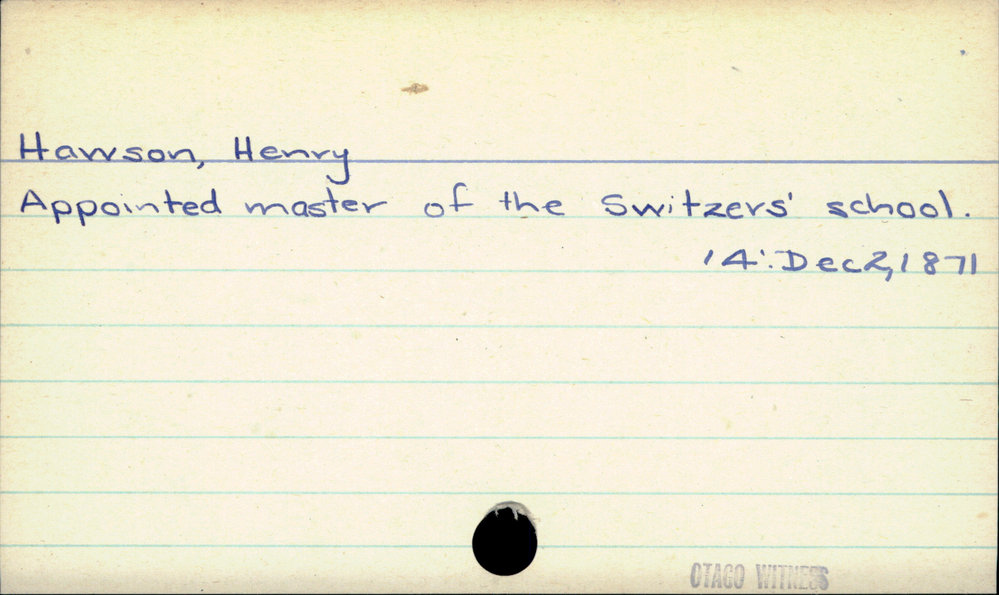 Hawson, Henry
Appointed master of the Switzers' school.
14:Dec2,1871
OTAGO WITNESS